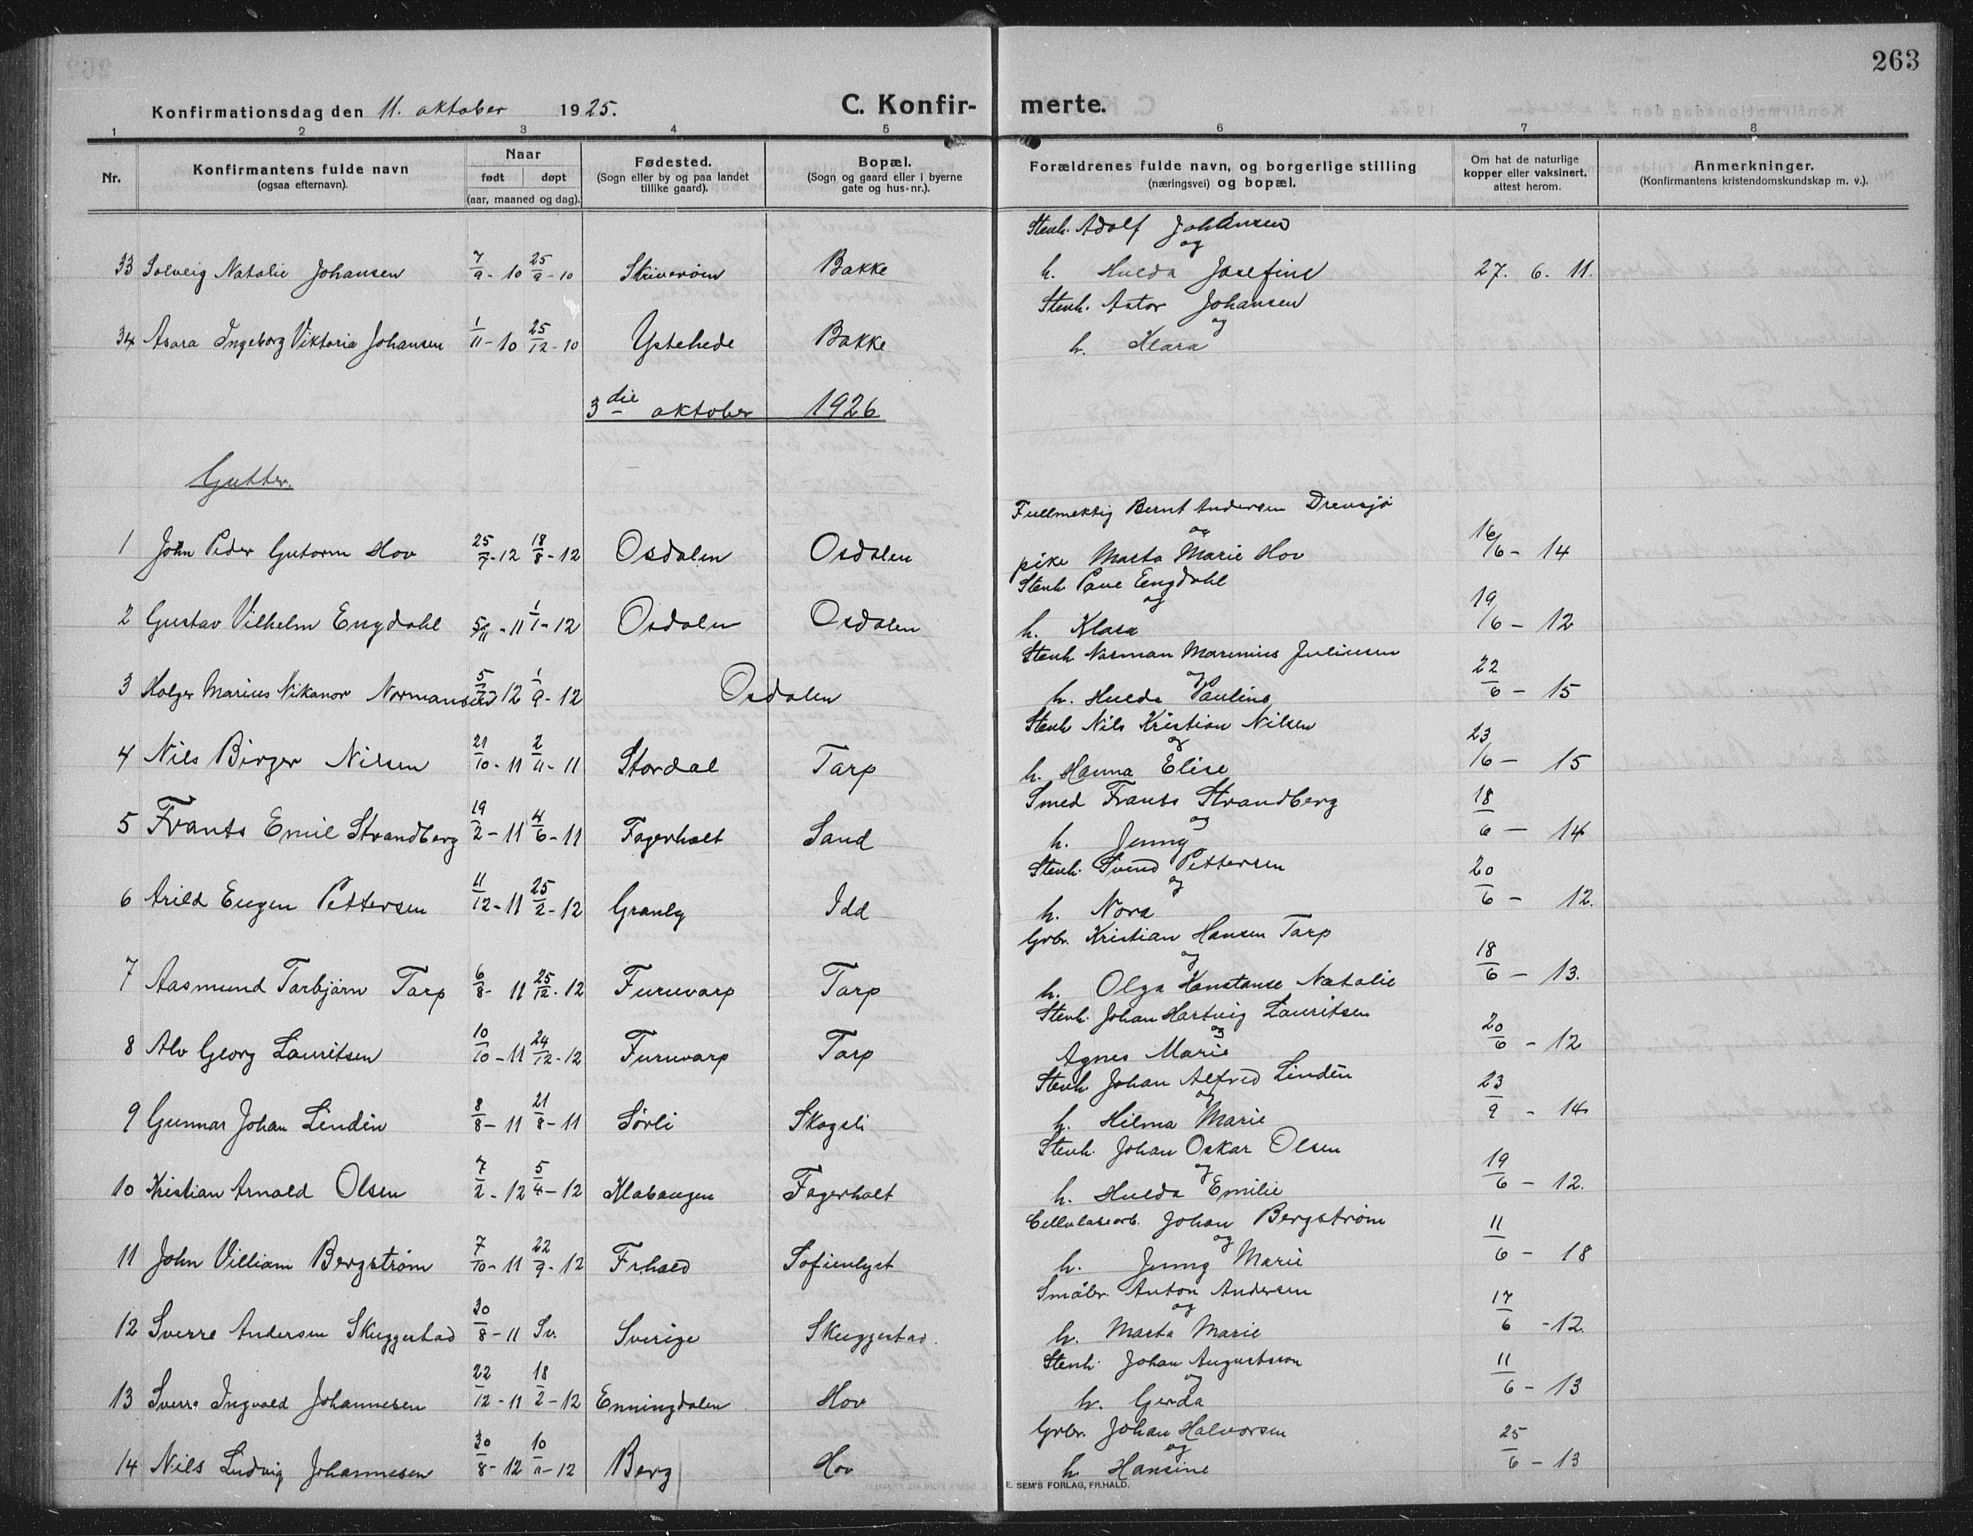 263
Konfirmationsdag den 11. oktober 1925. C. Konfir- merte.
1 2 3 4 5 6 7 8
Nr. Konfirmantens fulde navn (ogsaa efternavn). Naar født døpt (aar, maaned og dag). Fødested. (Sogn eller by og paa landet tillike gaard). Bopæl. (Sogn og gaard eller i byerne gate og hus-nr.). Forældrenes fulde navn, og borgerlige stilling (næringsvei) og bopæl. Om hat de naturlige kopper eller vaksinert, attest herom. Anmerkninger. (Konfirmantens kristendomskundskap m. v.).
Stenh. Adolf Johansen
og
33 Solveig Natalie Johansen 7/9 - 10 25/9 - 10 Skriverøen Bakke h. Hulda Josefine 27. 6. 11.
Stenh. Astor Johansen
og
34 Asora Ingeborg Viktoria Johansen 1/11 - 10 25/12 - 10 Ystehede Bakke h. Klara
3die oktober 1926
Gutter.
Fullmektig Bernt Andersen Drevsjø
og
1 John Peder Gutorm Hov 25/7 - 12 18/8 - 12 Osdalen Osdalen pike Marta Marie Hov 16/6 - 14
Stenh Paul Engdahl
og
2 Gustav Vilhelm Engdahl 5/11 - 11 1/1 - 12 Osdalen Osdalen h. Klara 19/6 - 12
Stenh Norman Marinius Juliusen
og
3 Holger Marius Nikanor Normansen 12 1/9 - 12 Osdalen h. Hulda Pauline 22/6 - 15
Stenh Nils Kristian Nilsen
og
4 Nils Birger Nilsen 21/10 - 11 2/11 - 11 Stordal Tarp h. Hanna Elise 23/6 - 15
Smed Frants Strandberg
og
5 Frants Emil Strandberg 19/2 - 11 4/6 - 11 Fagerholt Sand h. Jenny 18/6 - 14
Stenh. Svend Pettersen
og
6 Arild Eugen Pettersen 11/12 - 11 25/2 - 12 Granly Idd h. Nora 20/6 - 12.
Grbr. Kristian Hansen Tarp
og
7 Aasmund Torbjørn Tarp 6/8 - 11 25/12 - 12 Furuvarp Tarp h. Olga Konstanse Natalie 18/6 - 13.
Stenh. Johan Hartvig Lauritsen
og
8 Alv Georg Lauritsen 10/10 - 11 24/12 - 12 Furuvarp Tarp Agnes Marie 20/6 - 12
Stenh. Johan Alfred Lindén
og
9 Gunnar Johan Lindén 8/8 - 11 21/8 - 11 Sørli Skogsli h. Hilma Marie 23/9 - 14
Stenh. Johan Oskar Olsen
og
10 Kristian Arnold Olsen 7/2 - 12 5/4 - 12 Klabaugen Fagerholt h. Hulda Emilie 19/6 - 12.
Cellulosearb. Johan Bergstrøm
og
11 John Villiam Bergstrøm 7/10 - 11 22/9 - 12 Fr.hald Sofienlyst h. Jenny Marie 11/6 - 18
Småbr. Anton Andersen
og
12 Sverre Andersen Skuggestad 30/8 - 11 Sv. Sverige Skuggestad. h. Marta Marie 17/6 - 12.
Stenh. Johan Augustsson
og
13 Sverre Ingvald Johannesen 22/12 - 11 18/2 - 12 Enningdalen Hov h. Gerda 11/6 - 13
Grbr. Johan Halvorsen
og
14 Nils Ludvig Johannesen 30/8 - 12 10/11 - 12 Berg Hov h. Hansine 25/6 - 13
E. SEM'S FORLAG, FR.HALD.